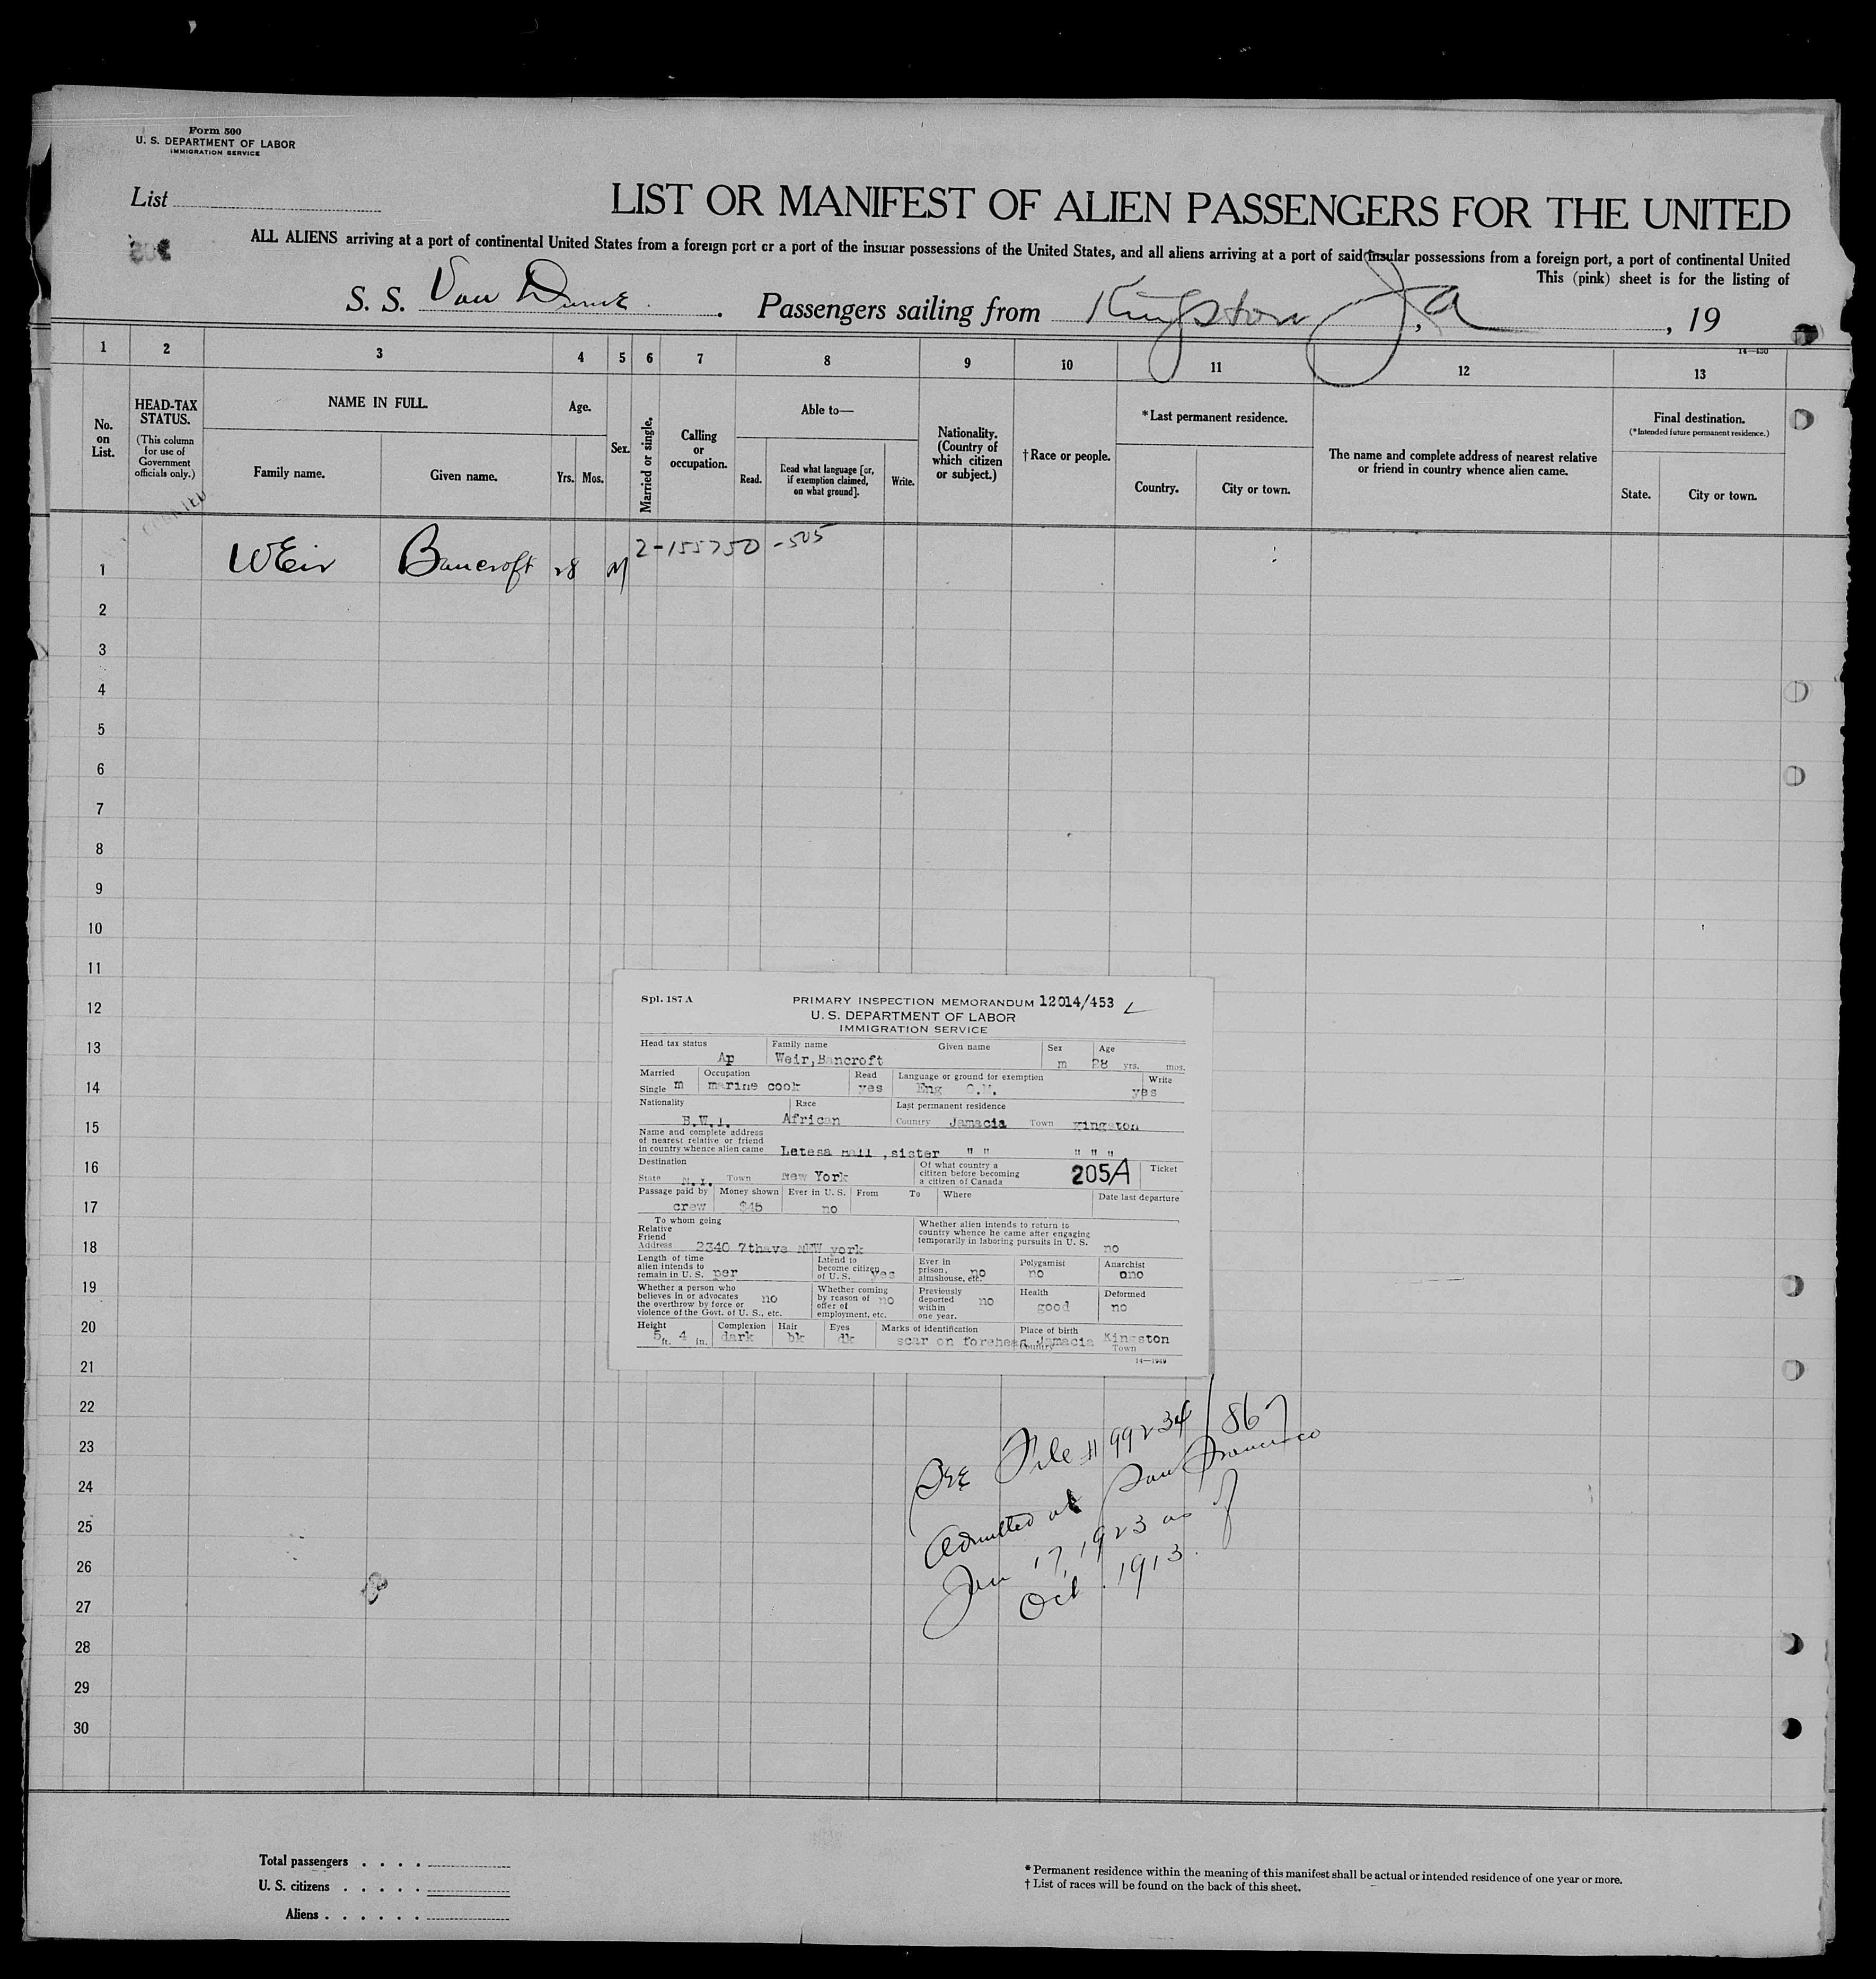 Form 500
U. S. DEPARTMENT OF LABOR
IMMIGRATION SERVICE
List
LIST OR MANIFEST OF ALIEN PASSENGERS FOR THE UNITED
ALL ALIENS arriving at a port of continental United States from a foreign port or a port of the insular possessions of the United States, and all aliens arriving at a port of said insular possessions from a foreign port, a port of continental United
This (pink) sheet is for the listing of
S. S. Van . Passengers sailing from Kingston Ja , 19
14—430
1 2 3 4 5 6 7 8 9 10 11 12 13
No. on List.
HEAD-TAX STATUS.
(This column for use of Government officials only.)
NAME IN FULL.
Family name. Given name.
Age.
Yrs. Mos.
Sex.
Married or single.
Calling or occupation.
Able to—
Read. Read what language [or, if exemption claimed, on what ground]. Write.
Nationality. (Country of which citizen or subject.)
†Race or people.
*Last permanent residence.
Country. City or town.
The name and complete address of nearest relative or friend in country whence alien came.
Final destination.
(*Intended future permanent residence.)
State. City or town.
1 WEir Bancroft 28 M 2-155750-505
2
3
4
5
6
7
8
9
10
11
12
13
14
15
16
17
18
19
20
21
22
23
24
25
26
27
28
29
30
Spl. 187 A PRIMARY INSPECTION MEMORANDUM 12014/453
U. S. DEPARTMENT OF LABOR
IMMIGRATION SERVICE
Head tax status Family name Given name Sex Age
Ap Weir,Bancroft m 28 yrs. mos.
Married Occupation Read Language or ground for exemption Write
Single m marine cook yes Eng yes
Nationality Race Last permanent residence
B.W.I. African Country Jamacia Town Kingston
Name and complete address
of nearest relative or friend
in country whence alien came Letesa ,sister " " " " "
Destination Of what country a citizen before becoming a citizen of Canada 205A Ticket
State Town New York
Passage paid by Money shown Ever in U. S. From To Where Date last departure
crew $45 no
To whom going
Relative
Friend
Address 2340 7thave NEW york
Whether alien intends to return to country whence he came after engaging temporarily in laboring pursuits in U. S. no
Length of time alien intends to remain in U. S. per
Intend to become citizen of U. S. yes
Ever in prison, almshouse, etc. no
Polygamist no
Anarchist ono
Whether a person who believes in or advocates the overthrow by force or violence of the Govt. of U. S., etc. no
Whether coming by reason of offer of employment, etc. no
Previously deported within one year. no
Health good
Deformed no
Height Complexion Hair Eyes Marks of identification Place of birth
5 ft. 4 in. dark bk dk scar on forehead Jamacia Kingston
Country Town
14—1949
See File # 99234/867
Admitted at San Francisco
Jan 17, 1923 as of
Oct. 1913.
Total passengers . . . .
U. S. citizens . . . . .
Aliens . . . . . .
* Permanent residence within the meaning of this manifest shall be actual or intended residence of one year or more.
† List of races will be found on the back of this sheet.